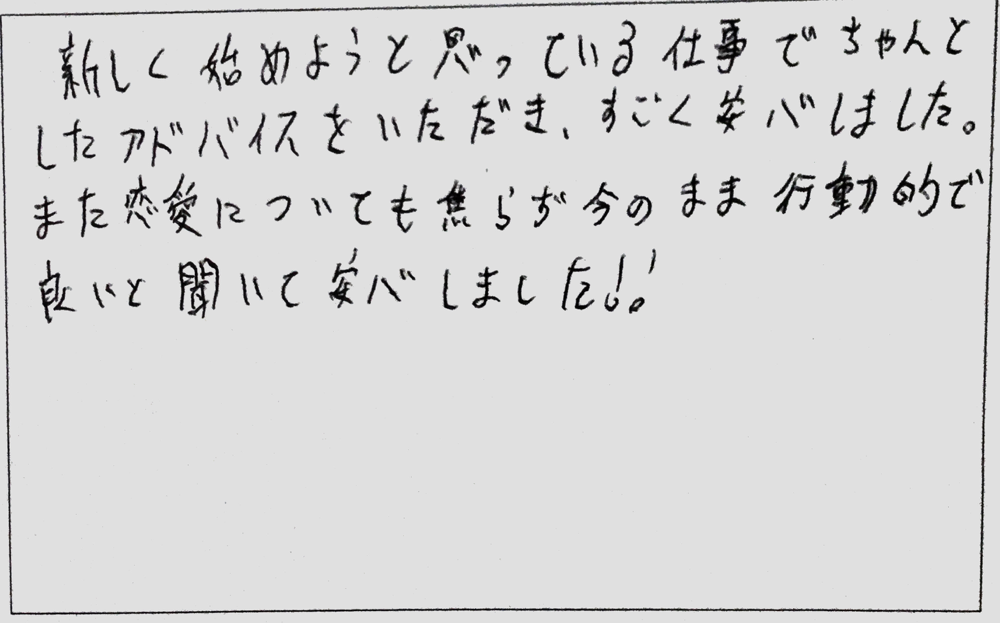 新しく始めようと思っている仕事でちゃんと
したアドバイスをいただき、すごく安心しました。
また恋愛についても焦らず今のまま行動的で
良いと聞いて安心しました!!